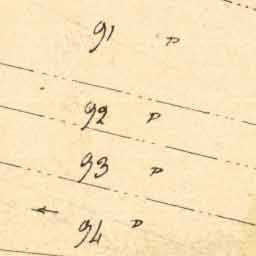 91 P
92 P
93 P
94 P